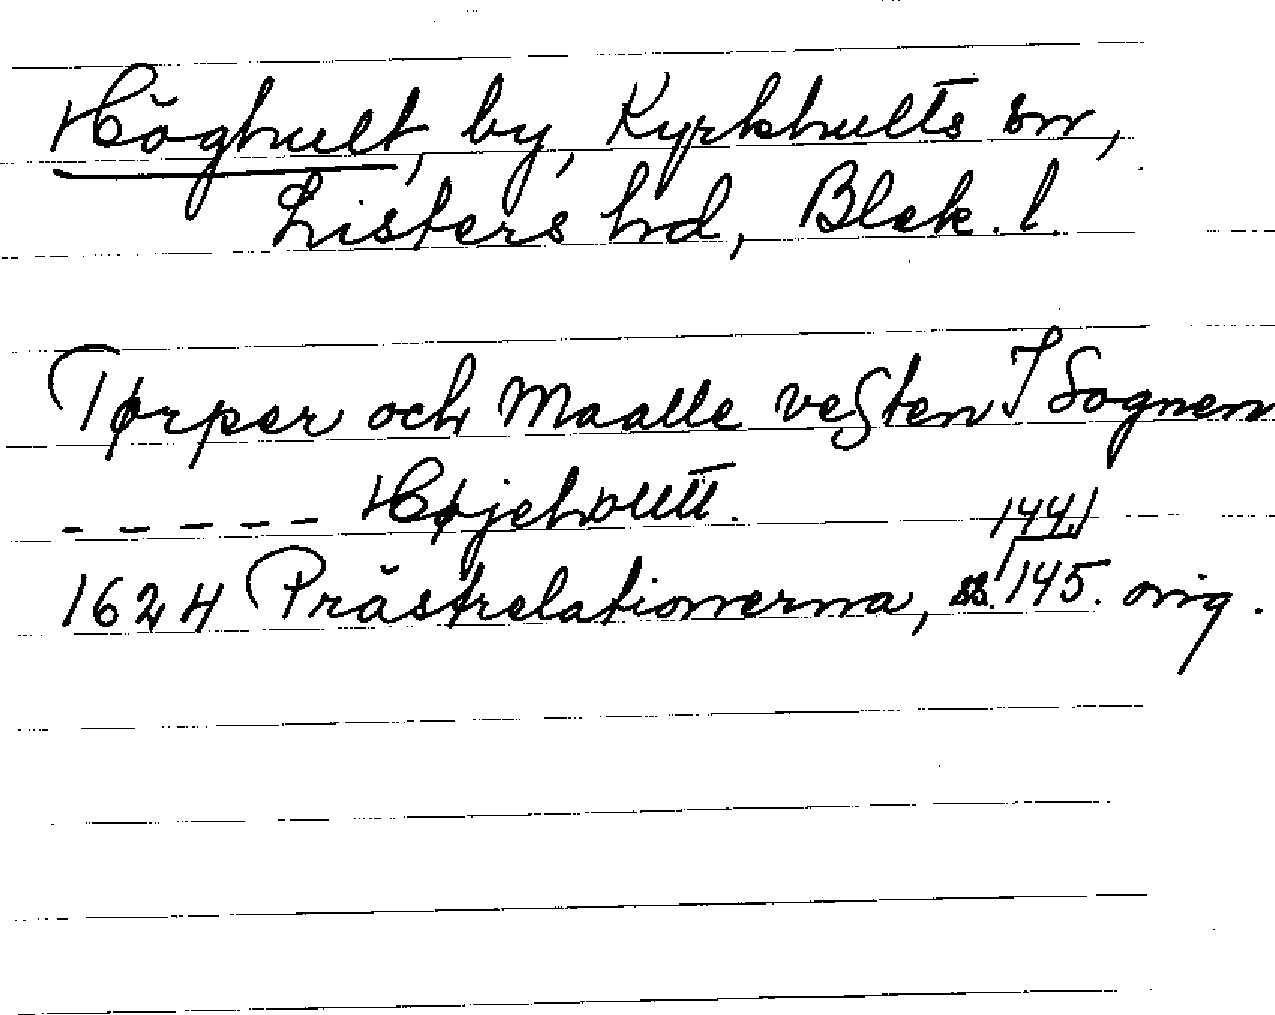 Höghult, by, Kyrkhults sn,
Listers hd, Blek. l.
Tørper och Maalle vesten I Sognen
- - - - - Højehoultt.
144,
1624 Prästrelationerna, ss. 145. orig.